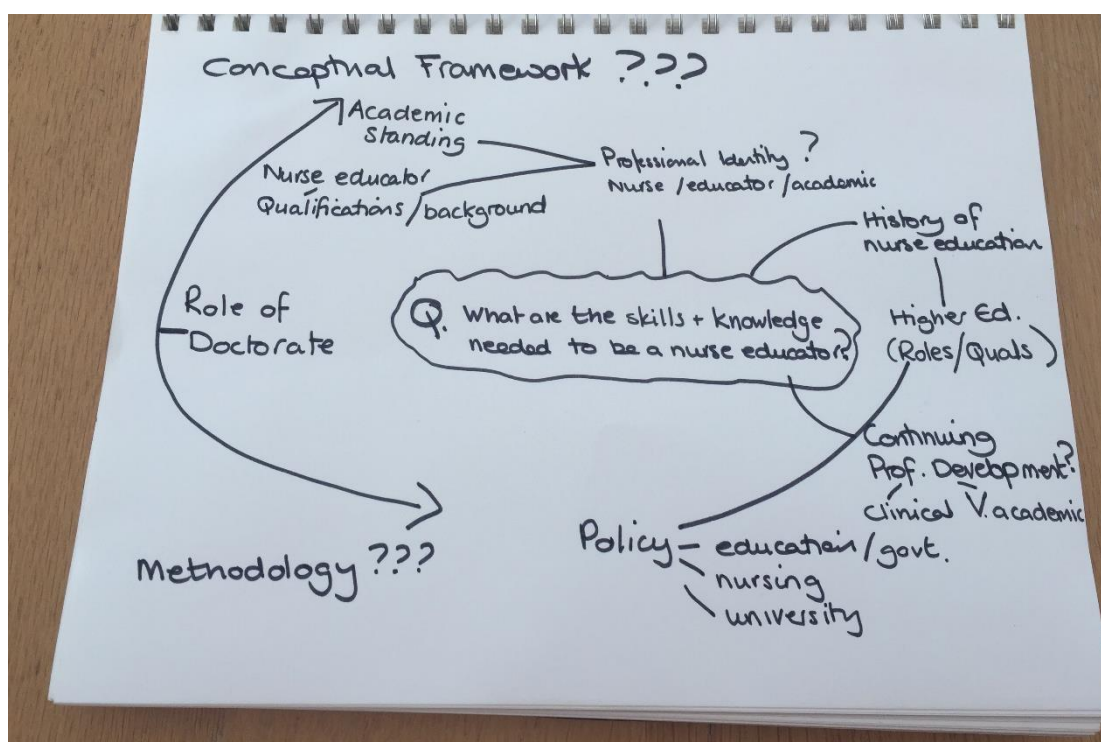 Conceptual Framework ???
Academic
Standing
Nurse educator
Qualifications/background
Professional Identity ?
Nurse/educator/academic
History of
nurse education
Role of
Doctorate
Q. What are the skills + knowledge
needed to be a nurse educator?
Higher Ed.
(Roles/Quals)
Continuing
Prof. Development?
Clinical V. academic
Policy - education/govt.
nursing
university
Methodology ???